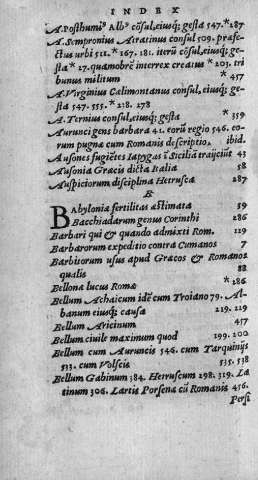 INDEX
A. Posthumi⁹ Alb⁹ cõsul, eiusq; gesta 547. *287
A. Sempronius Atratinus consul 509. præfectus
urbi 512. *267. 281. iterũ cõsul, eiusq; gesta
*27. quamobrẽ interrex creatus *203. tribunus
militum *457
A. Virginius Calimontanus consul, eiusq; gesta
547. 555. *218. 278
A. Ternius consul, eiusq; gesta *359
Aurunci gens barbara 41. eorũ regio 546. eorum
pugna cum Romanis descriptio. ibid.
Ausones fugiẽtes Iapygas ĩ Sicilia traijciũt 43
Ausonia Græcis dicta Italia 58
Auspiciorum disciplina Hetrusca 287
B
BAbylonia fertilitas æstimata 59
Bacchiadarum genus Corinthi 286
Barbari qui & quando admixti Rom. 129
Barbarorum expeditio contra Cumanos 7
Barbitorum usus apud Græcos & Romanos
qualis 88
Bellona lucus Romæ *286
Bellum Achaicum idẽ cum Troiano 79. Albanum
eiusq; causa 219. 219
Bellum Aricinum 457
Bellum ciuile maximum quod 199. 200
Bellum cum Auruncis 546. cum Tarquinijs
533. cum Volscis 535. 538
Bellum Gabinum 384. Hetruscum 298. 319. Latinum
306. Lartis Porsena cũ Romanis 456.
Persi